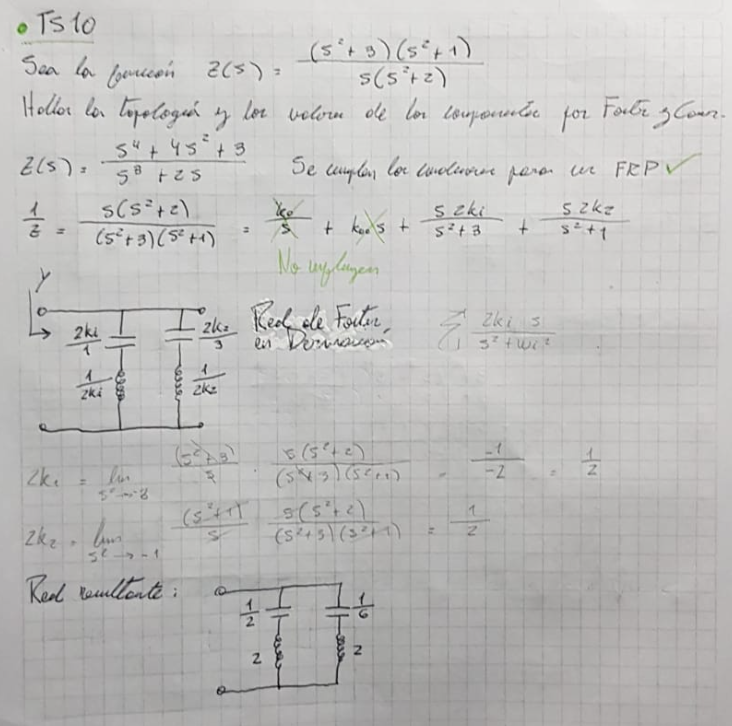 • TS10
Sea la función Z(s) = (s²+3)(s²+1) / s(s²+2)
Hallar la topología y los valores de los componentes por Foster y Cauer.
Z(s) = s⁴ + 4s² + 3 / s³ + 2s Se cumplen las condiciones para ser FRP ✓
1/Z = s(s²+2) / (s²+3)(s²+1) = k₀/s + k∞ s + s 2k₁ / s²+3 + s 2k₂ / s²+1
No influyen
Y
2k₁/1 2k₂/3 Red de Foster
1/2k₁ 1/2k₂ en Derivacion
Σ 2ki s / s²+wi²
2k₁ = lim s²→-3 (s²+3)/s · s(s²+2) / (s²+3)(s²+1) = -1/-2 = 1/2
2k₂ = lim s²→-1 (s²+1)/s s(s²+2) / (s²+3)(s²+1) = 1/2
Red resultante:
1/2 1/6
2 2